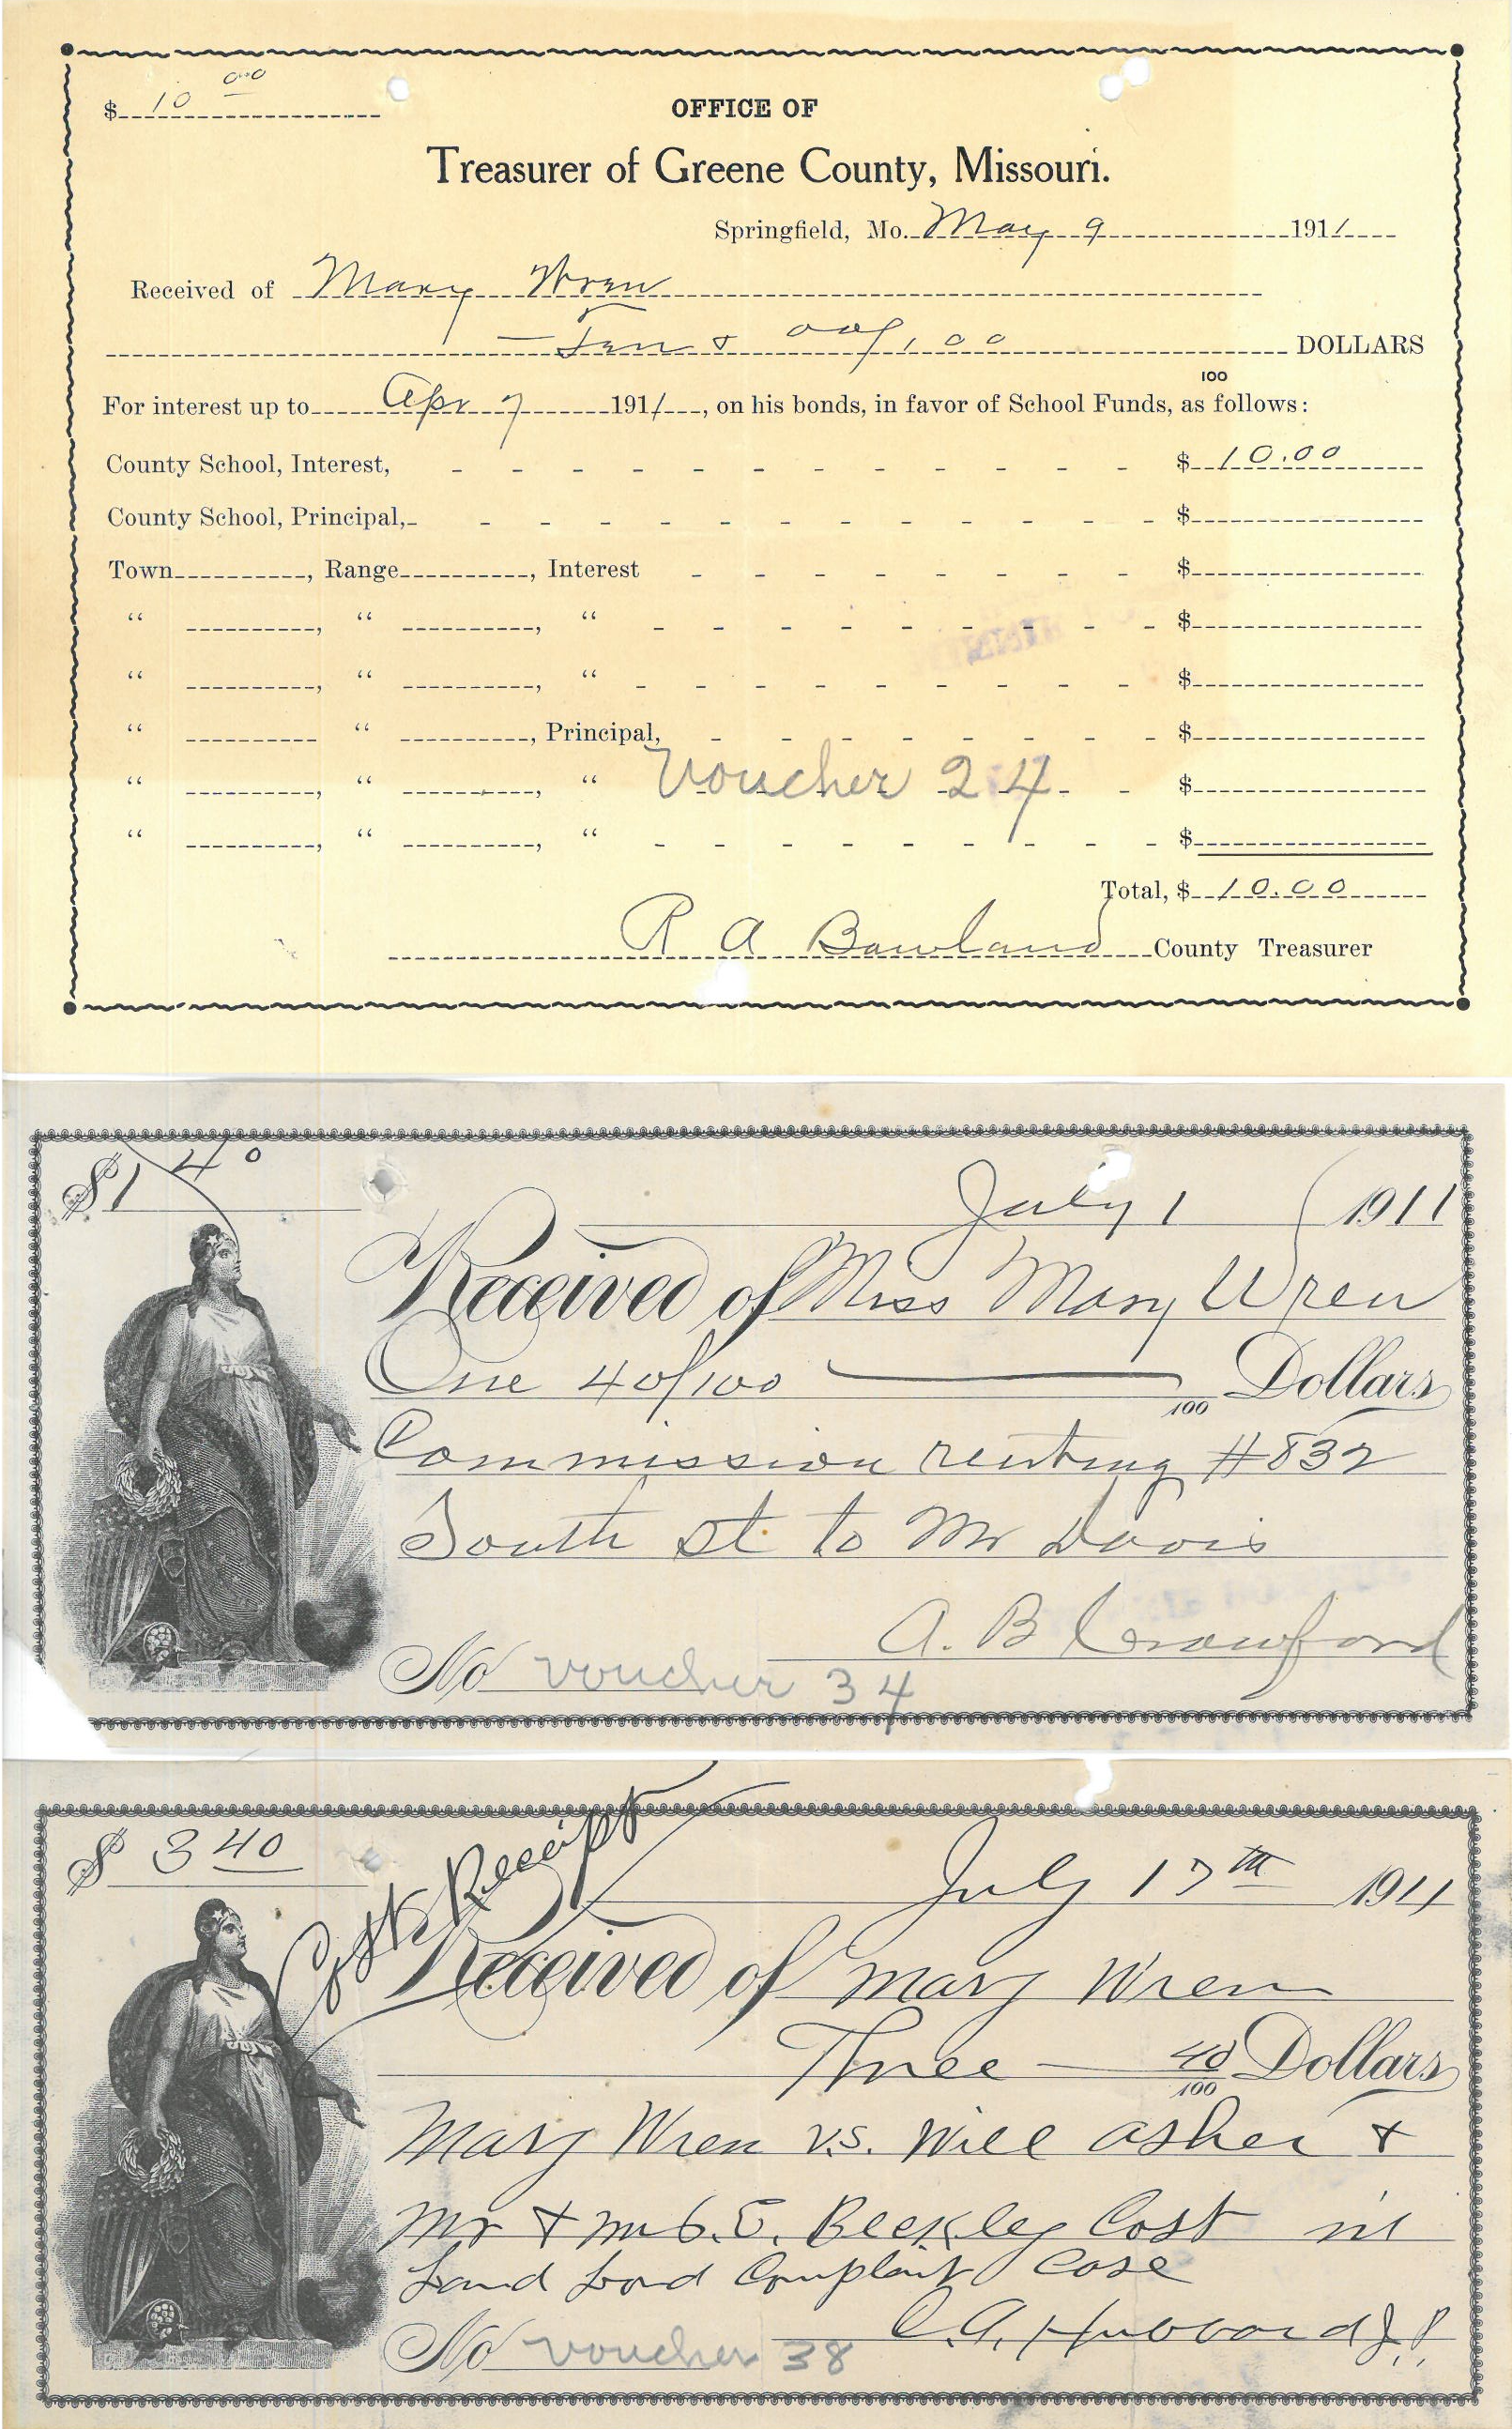 $ 10 00
OFFICE OF
Treasurer of Greene County, Missouri.
Springfield, Mo. May 9 1911
Received of Mary Wren
Ten & 00/100 DOLLARS
100
For interest up to Apr 7 1911, on his bonds, in favor of School Funds, as follows:
County School, Interest, $ 10.00
County School, Principal, $
Town , Range , Interest $
“ , “ , “ $
“ , “ , “ $
“ “ , Principal, $
“ , “ , “ Voucher 24 $
“ , “ , “ $
Total, $ 10.00
R A Bowland County Treasurer
$1 40
July 1 1911
Received of Miss Mary Wren
One 40/100 Dollars
100
Commission renting #832
South St to Mr Davis
A. B Crawford
No voucher 34
$ 3 40
Cost Receipt
July 17th 1911
Received of Mary Wren
Three 40/100 Dollars
Mary Wren v.s. Will Asher &
Mr & Mrs. E. Beckley Cost in
Land Lord Complaint Case
C.A. Hubbard J.P.
No voucher 38